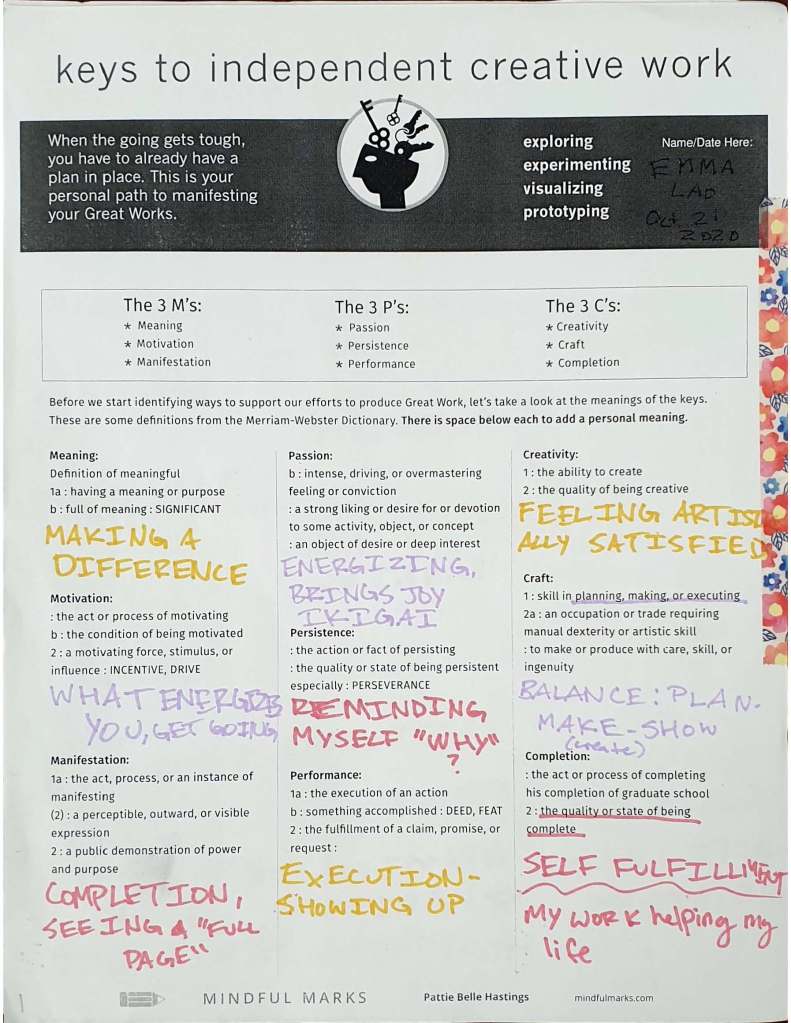 keys to independent creative work
When the going gets tough,
you have to already have a
plan in place. This is your
personal path to manifesting
your Great Works.
exploring
experimenting
visualizing
prototyping
Name/Date Here:
EMMA
LAD
Oct 21
2020
The 3 M's:
* Meaning
* Motivation
* Manifestation
The 3 P's:
* Passion
* Persistence
* Performance
The 3 C's:
* Creativity
* Craft
* Completion
Before we start identifying ways to support our efforts to produce Great Work, let's take a look at the meanings of the keys.
These are some definitions from the Merriam-Webster Dictionary. There is space below each to add a personal meaning.
Meaning:
Definition of meaningful
1a : having a meaning or purpose
b : full of meaning : SIGNIFICANT
MAKING A
DIFFERENCE
Motivation:
: the act or process of motivating
b : the condition of being motivated
2 : a motivating force, stimulus, or
influence : INCENTIVE, DRIVE
WHAT ENERGIZES
YOU, GET GOING
Manifestation:
1a : the act, process, or an instance of
manifesting
(2) : a perceptible, outward, or visible
expression
2 : a public demonstration of power
and purpose
COMPLETION,
SEEING A "FULL
PAGE"
Passion:
b : intense, driving, or overmastering
feeling or conviction
: a strong liking or desire for or devotion
to some activity, object, or concept
: an object of desire or deep interest
ENERGIZING,
BRINGS JOY
IKIGAI
Persistence:
: the action or fact of persisting
: the quality or state of being persistent
especially : PERSEVERANCE
REMINDING
MYSELF "WHY"
?
Performance:
1a : the execution of an action
b : something accomplished : DEED, FEAT
2 : the fulfillment of a claim, promise, or
request :
EXECUTION-
SHOWING UP
Creativity:
1 : the ability to create
2 : the quality of being creative
FEELING ARTIST
ALLY SATISFIED
Craft:
1 : skill in planning, making, or executing
2a : an occupation or trade requiring
manual dexterity or artistic skill
: to make or produce with care, skill, or
ingenuity
BALANCE: PLAN-
MAKE-SHOW
(create)
Completion:
: the act or process of completing
his completion of graduate school
2 : the quality or state of being
complete
SELF FULFILLMENT
My work helping my
life
MINDFUL MARKS
Pattie Belle Hastings
mindfulmarks.com